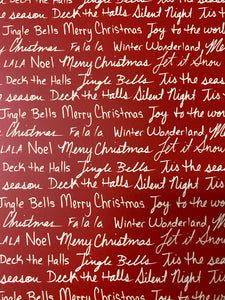 Deck the Halls Silent Night Tis
Jingle Bells Merry Christmas Joy to the wor
Christmas Fa la la Winter Wonderland, Me
LALA Noel Merry Christmas Let it Snow
Deck the Halls Jingle Bells Tis the sea
season Deck the Halls Silent Night Tis
Jingle Bells Merry Christmas Joy to the wo
Christmas Fa la la Winter Wonderland, M
LALA Noel Merry Christmas Let it Snow
Deck the Halls Jingle Bells Tis the sea
season Deck the Halls Silent Night Tis
Jingle Bells Merry Christmas Joy to the wo
Christmas Fa la la Winter Wonderland, M
LALA Noel Merry Christmas Let it Snow
Deck the Halls Jingle Bells Tis the se
season Deck the Halls Silent Night Tis
Jingle Bells Merry Christmas Joy to the